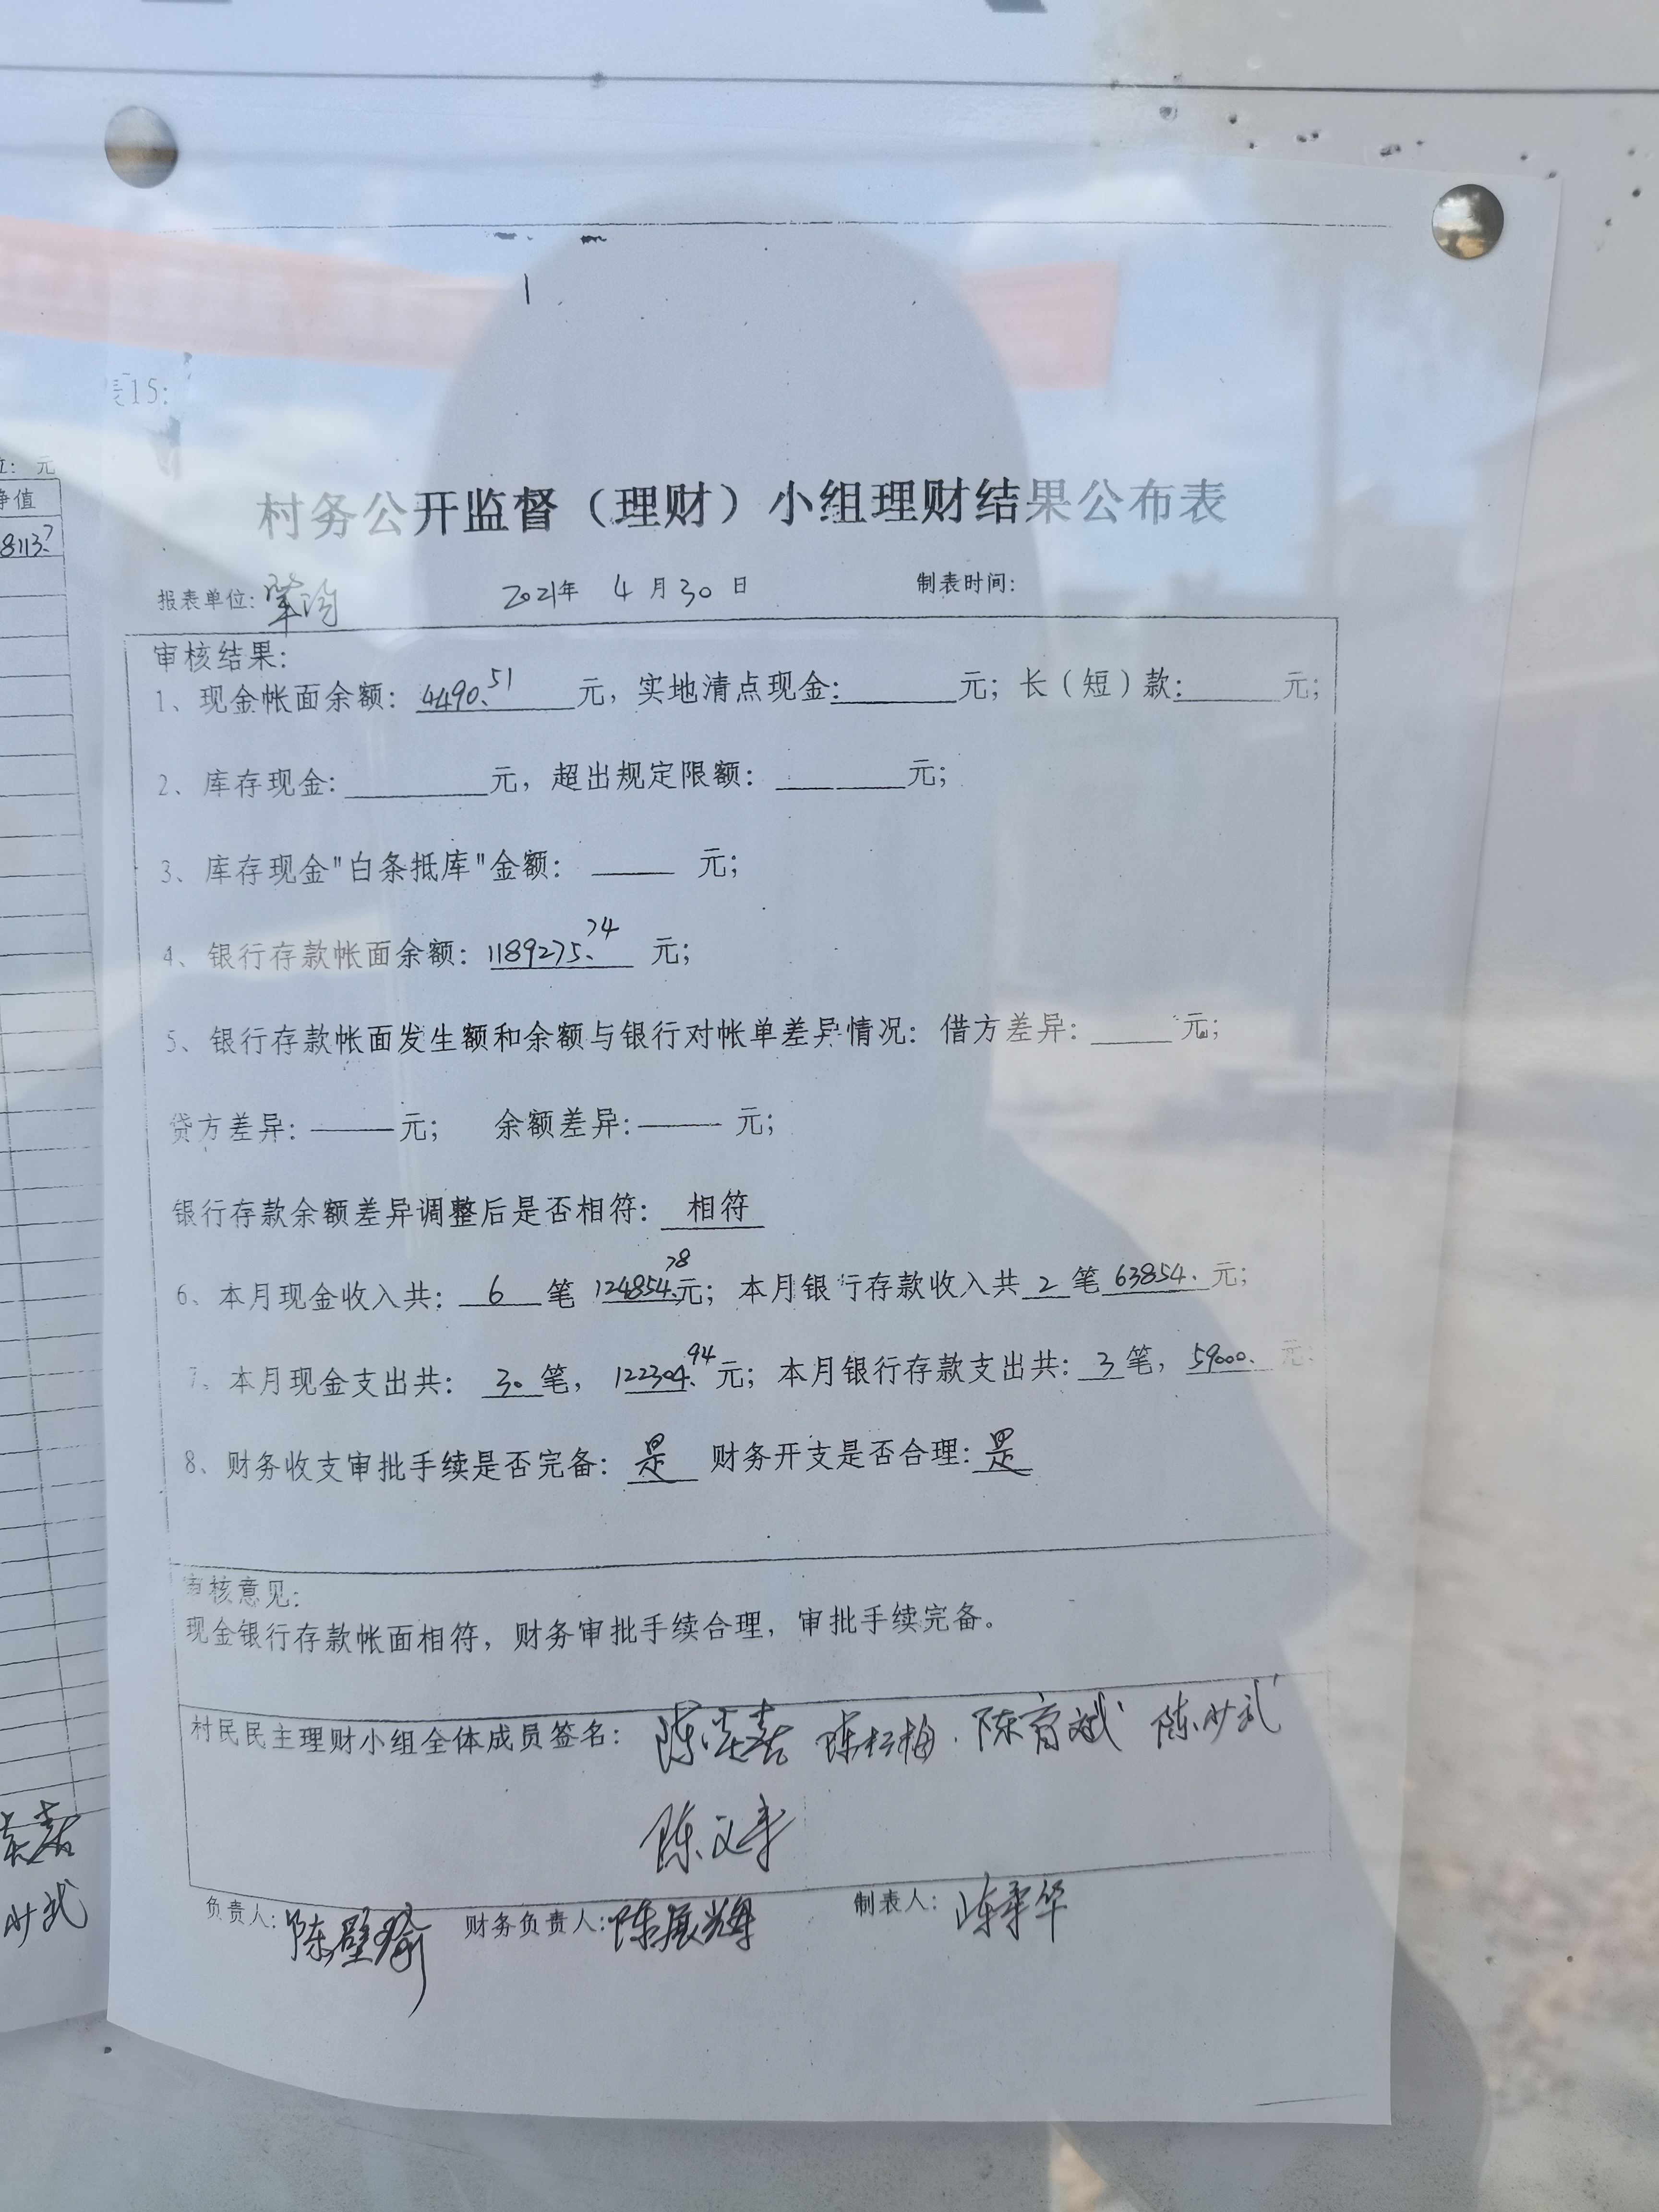 表15:
位: 元
净值
8113.7
村务公开监督（理财）小组理财结果公布表
报表单位: 2021年 4月30日 制表时间:
审核结果:
1、现金帐面余额: 4490.51 元, 实地清点现金:______元; 长（短）款:______元;
2、库存现金:______元, 超出规定限额: ______元;
3、库存现金"白条抵库"金额: ____ 元;
4、银行存款帐面余额: 1189275.74 元;
5、银行存款帐面发生额和余额与银行对帐单差异情况: 借方差异: ____元;
贷方差异: ——元; 余额差异:—— 元;
银行存款余额差异调整后是否相符: 相符
6、本月现金收入共: 6 笔 124854.78元; 本月银行存款收入共 2 笔 63854. 元;
7、本月现金支出共: 30 笔, 122304.94元; 本月银行存款支出共: 3笔, 59000. 元;
8、财务收支审批手续是否完备: 是 财务开支是否合理: 是
审核意见:
现金银行存款帐面相符, 财务审批手续合理, 审批手续完备。
村民民主理财小组全体成员签名: 陈 陈红梅 陈育斌 陈少武
陈文
少武
负责人: 陈壁瑜 财务负责人: 陈展辉 制表人: 陈 华